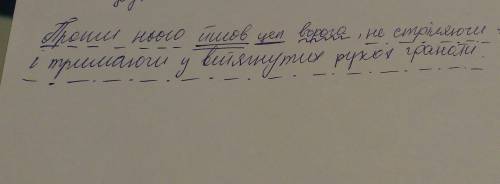 Проти нього ишов цеп ворога, не стріляючи
і тримаючи у витягнутих руках гранати.